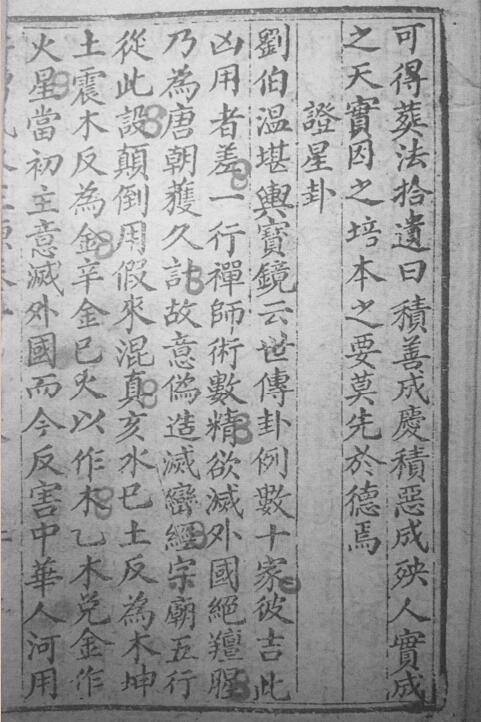 可得葬法拾遺曰積善成慶積惡成殃人實成
之天實因之培本之要莫先於德焉
證星卦
劉伯溫堪輿寶鏡云世傳卦例數十家彼吉此
凶用者差一行禪師術數精欲滅外國絕羶腥
乃為唐朝獲久計故意偽造滅蠻經宗廟五行
從此設顛倒用假來混真亥水巳土反為木坤
土震木反為金辛金巳火以作木乙木兌金作
火星當初主意滅外國而今反害中華人河用